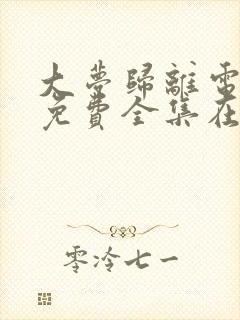 大夢歸離電
免費全集在
零泠七一